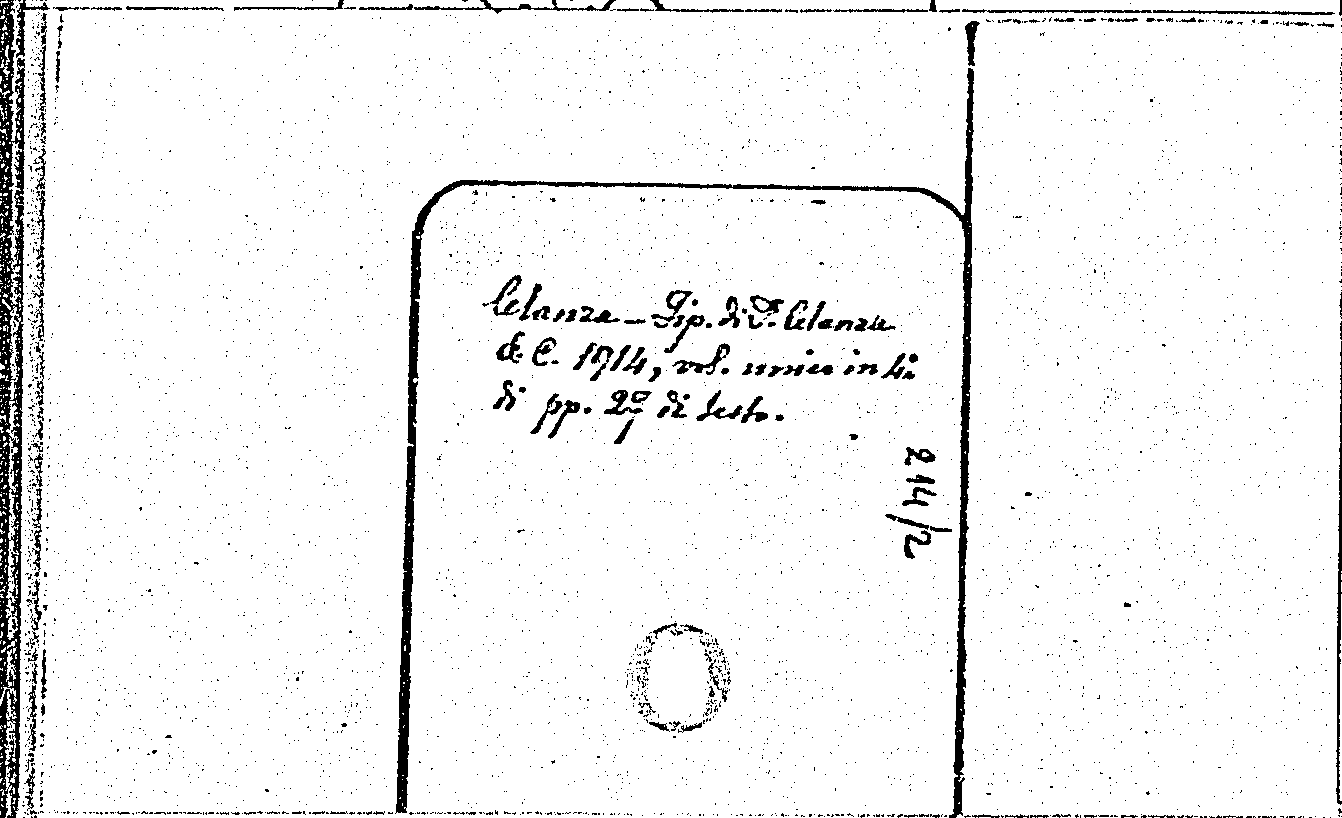 Celanza – Tip. di F. Celanza
& C. 1914, vol. unico in 4°
di pp. 29 di testo.
214/2